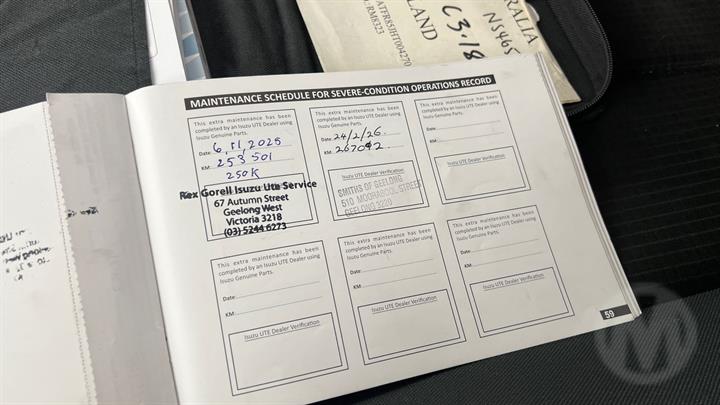 RALIA
NS465
ATFR85JHT004270
:RM8323
LAND
C3.18
MAINTENANCE SCHEDULE FOR SEVERE-CONDITION OPERATIONS RECORD
This extra maintenance has been
completed by an Isuzu Ute Dealer using
Isuzu Genuine Parts.
Date: 6, 11, 2025
KM: 253 501
250K
Rex Gorell Isuzu Ute Service
67 Autumn Street
Geelong West
Victoria 3218
(03) 5244 6273
This extra maintenance has been
completed by an Isuzu UTE Dealer using
Isuzu Genuine Parts.
Date: 24/2/26.
KM: 267042
Isuzu UTE Dealer Verification
SMITHS OF GEELONG
510 MOORABOOL STREET
GEELONG 3220
This extra maintenance has been
completed by an Isuzu UTE Dealer using
Isuzu Genuine Parts.
Date:
KM:
Isuzu UTE Dealer Verification
This extra maintenance has been
completed by an Isuzu UTE Dealer using
Isuzu Genuine Parts.
Date:
KM:
Isuzu UTE Dealer Verification
This extra maintenance has been
completed by an Isuzu UTE Dealer using
Isuzu Genuine Parts.
Date:
KM:
Isuzu UTE Dealer Verification
This extra maintenance has been
completed by an Isuzu UTE Dealer using
Isuzu Genuine Parts.
Date:
KM:
Isuzu UTE Dealer Verification
59
M